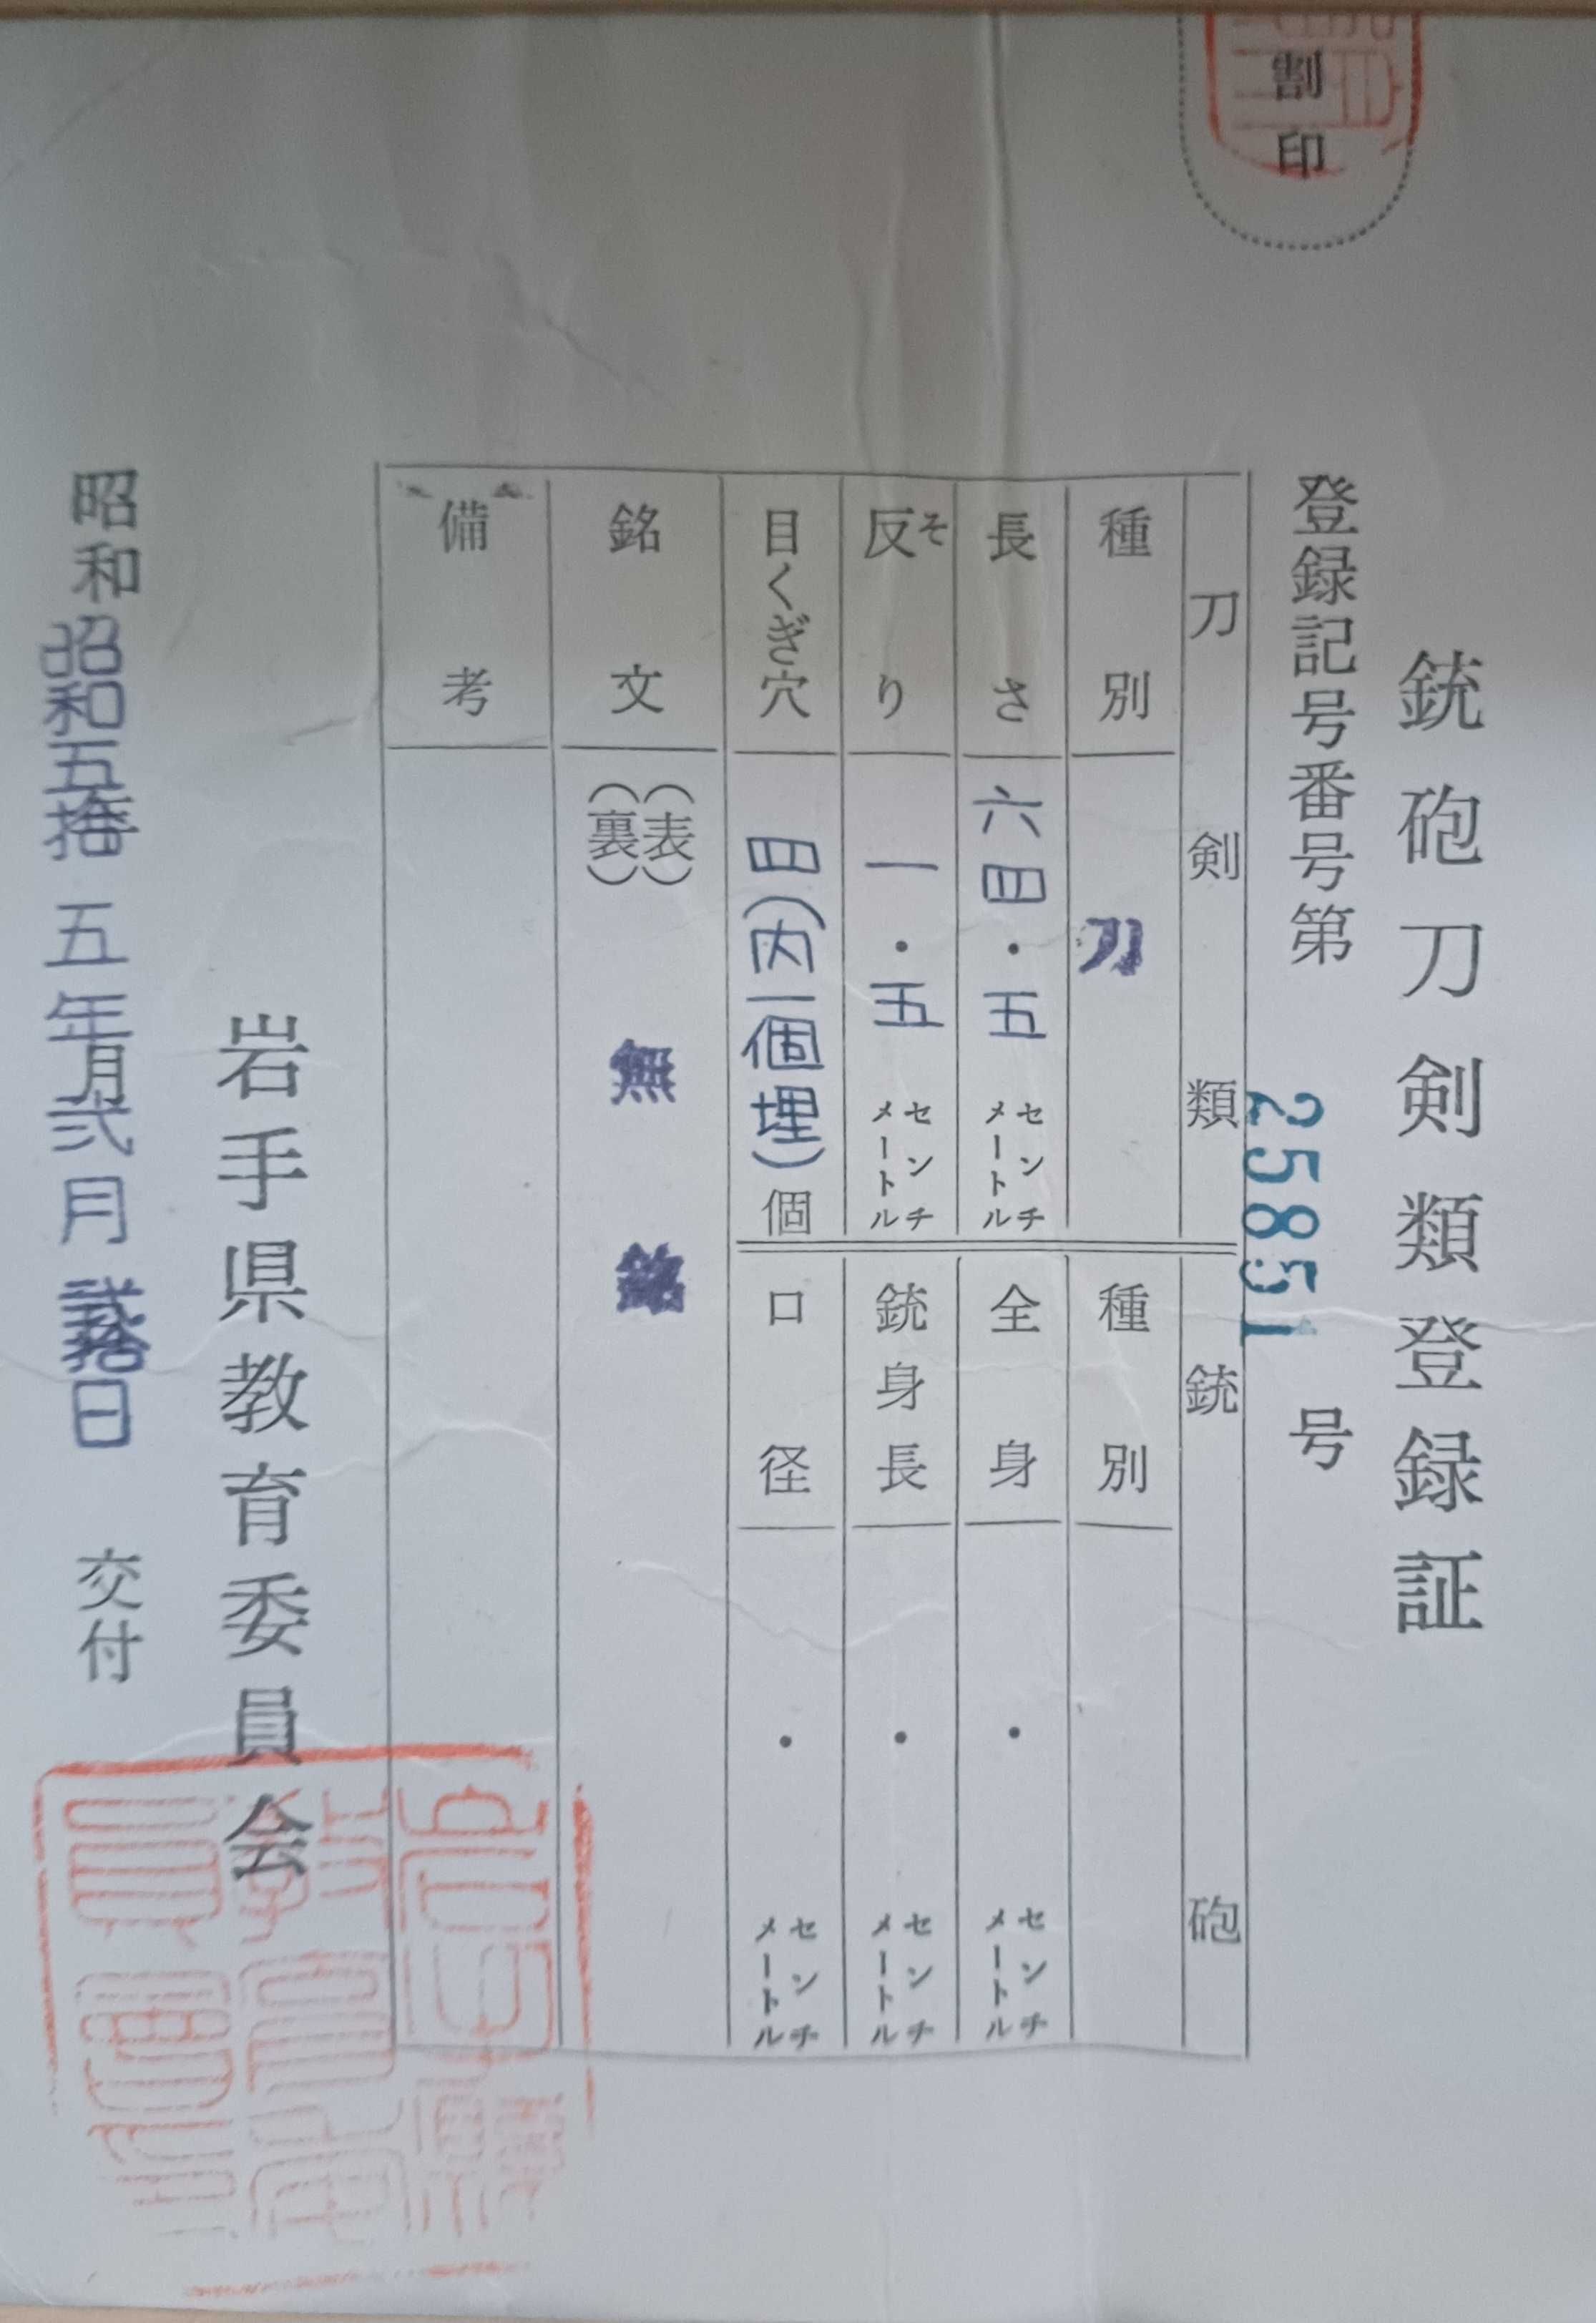 割印
銃砲刀剣類登録証
登録記号番号第 25851 号
刀剣類
銃砲
種別 刀
種別
長さ 六四・五 センチメートル
全身 ・ センチメートル
反り そ 一・五 センチメートル
銃身長 ・ センチメートル
目くぎ穴 四(内一個埋) 個
口径 ・ センチメートル
銘文 (表) (裏) 無銘
備考
岩手県教育委員会
昭和 昭和五拾五年 月 弐月 弐拾日 交付